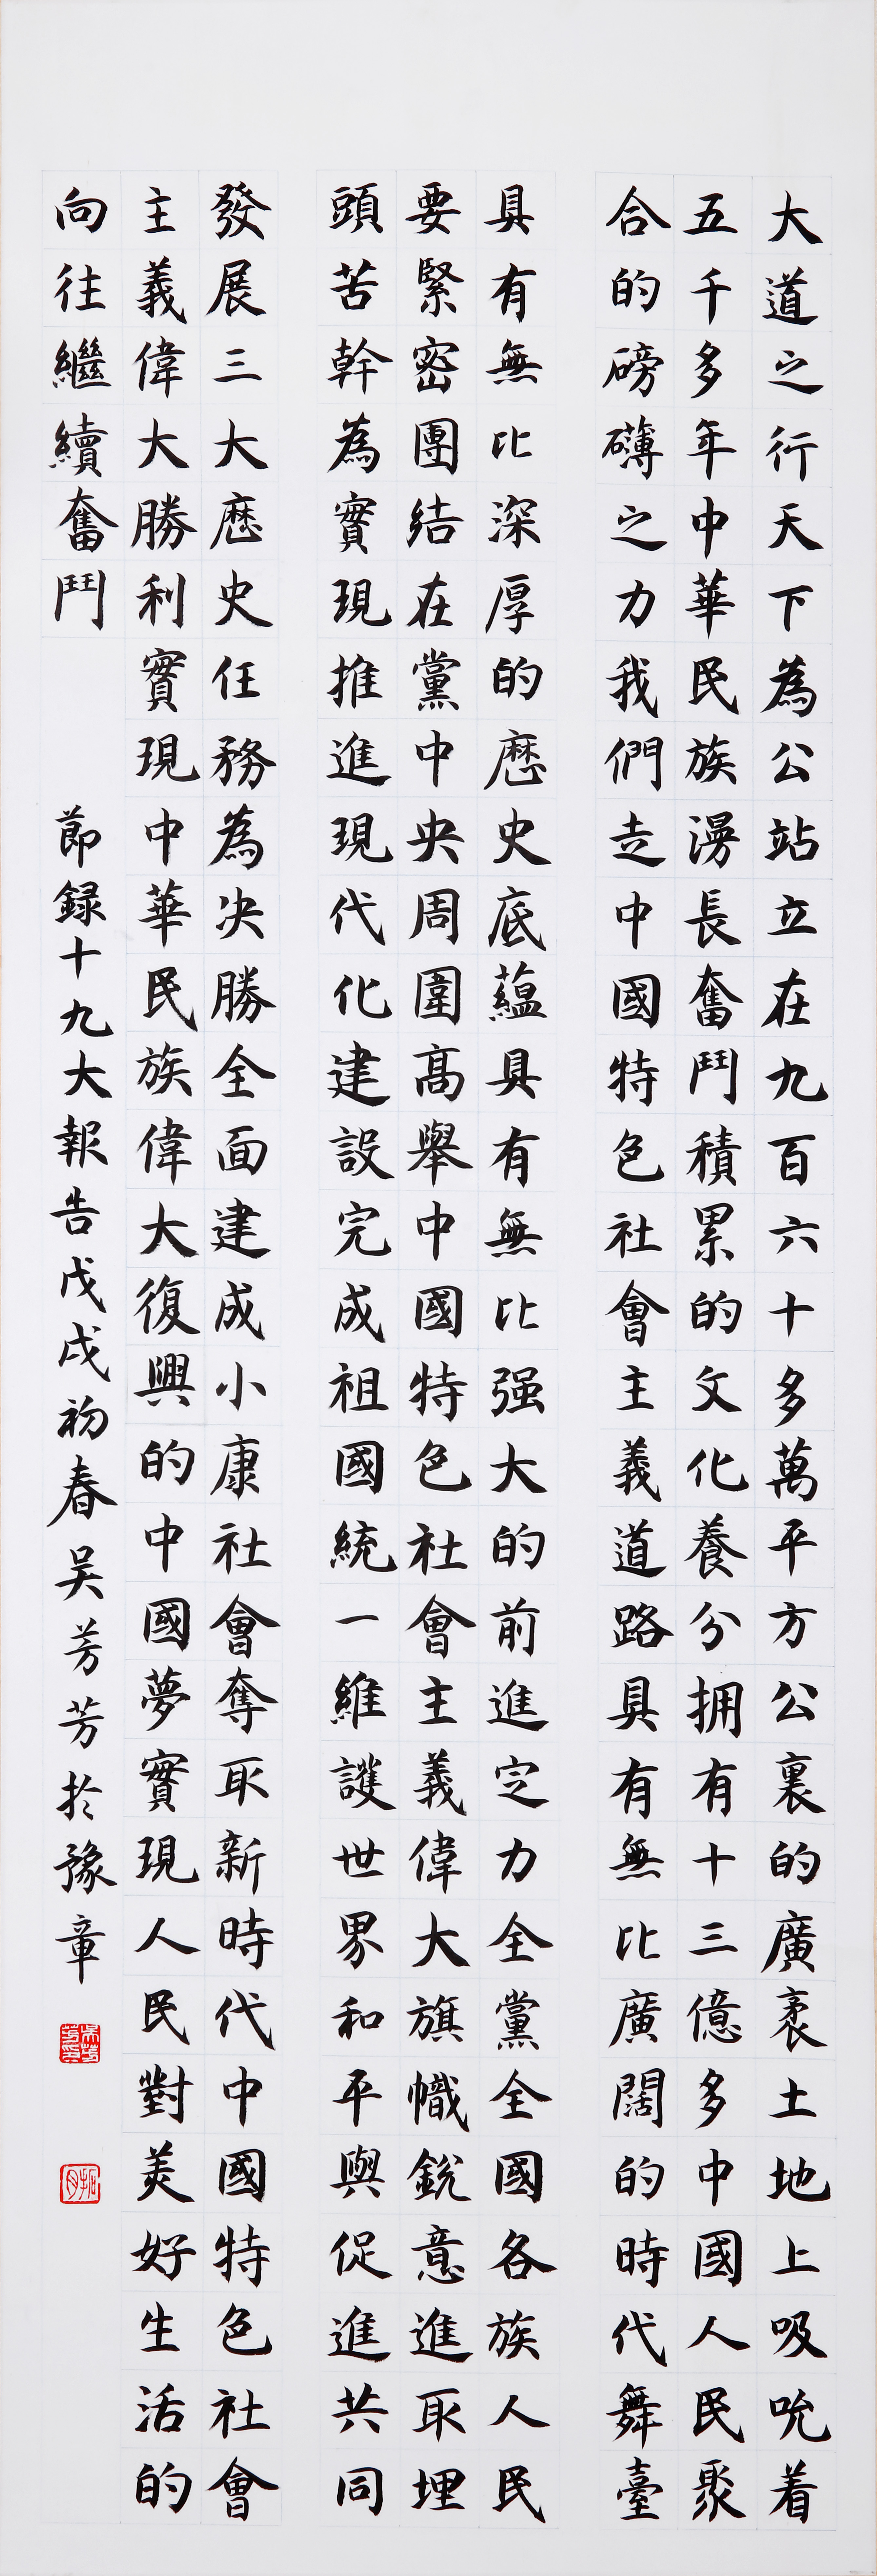 大道之行天下為公站立在九百六十多萬平方公裏的廣袤土地上吸吮着
五千多年中華民族漫長奮鬥積累的文化養分拥有十三億多中國人民聚
合的磅礴之力我們走中國特色社會主義道路具有無比廣闊的時代舞臺
具有無比深厚的歷史底蘊具有無比强大的前進定力全黨全國各族人民
要緊密團結在黨中央周圍高舉中國特色社會主義偉大旗幟銳意進取埋
頭苦幹為實現推進現代化建設完成祖國統一維護世界和平與促進共同
發展三大歷史任務為决勝全面建成小康社會奪取新時代中國特色社會
主義偉大勝利實現中華民族偉大復興的中國夢實現人民對美好生活的
向往繼續奮鬥
節録十九大報告戊戌初春吴芳芳於豫章